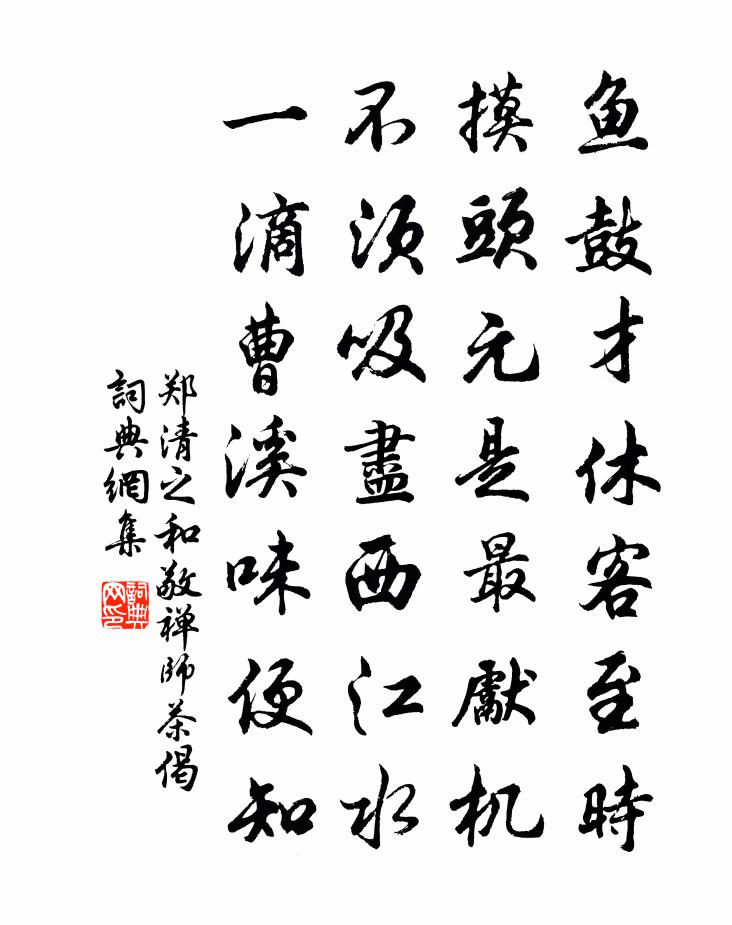 鱼鼓才休客至時
摸頭元是最獻机
不须吸盡西江水
一滴曹溪味便知
郑清之和敬禅师茶偈
詞典網集
詞典网印